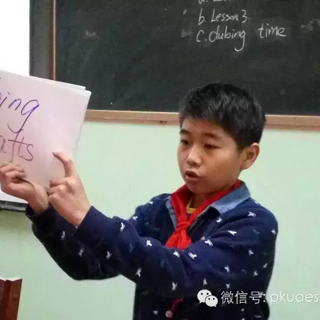 b. Lesson 3
c. dubing time
ing
afts
微信号: pkuaes